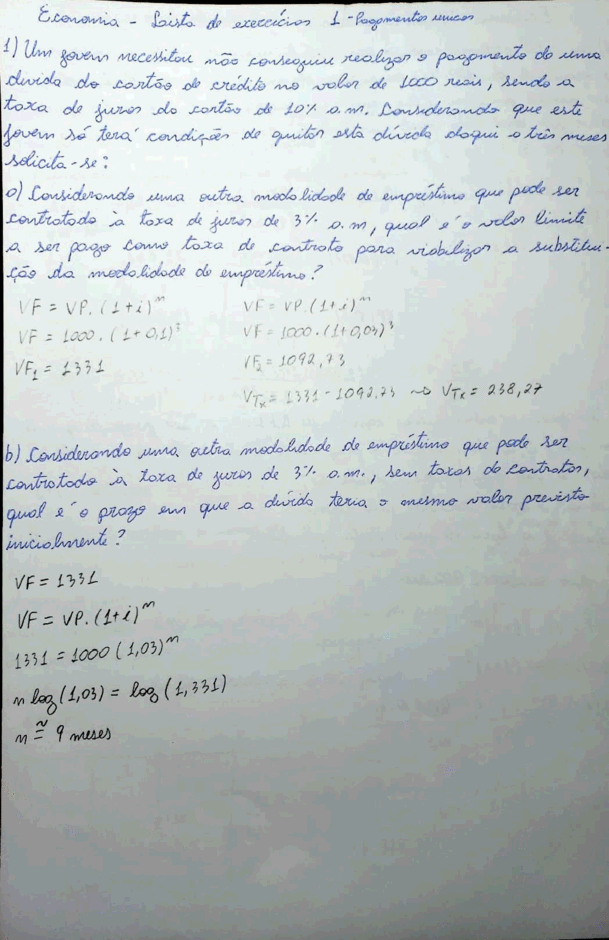 Economia - Lista de exercícios 1 - Pagamentos unicos
1) Um jovem necessitou não conseguiu realizar o pagamento de uma
divida do cartão de crédito no valor de 1000 reais, sendo a
taxa de juros do cartão de 10% a.m. Considerando que este
jovem só terá condições de quitar esta dívida daqui a três meses
solicita-se:
a) Considerando uma outra modalidade de empréstimo que pode ser
contratado à taxa de juros de 3% a.m, qual é o valor limite
a ser pago como taxa de contrato para viabilizar a substitui-
ção da modalidade de empréstimo?
VF = VP.(1+i)^n VF = VP.(1+i)^n
VF = 1000.(1+0,1)^3 VF = 1000.(1+0,03)^3
VF1 = 1331 VF2 = 1092,73
VTx = 1331 - 1092,73 ~> VTx = 238,27
b) Considerando uma outra modalidade de empréstimo que pode ser
contratado à taxa de juros de 3% a.m., sem taxas de contratos,
qual é o prazo em que a dívida teria o mesmo valor previsto
inicialmente?
VF = 1331
VF = VP.(1+i)^n
1331 = 1000(1,03)^n
n log(1,03) = log(1,331)
n ≅ 9 meses